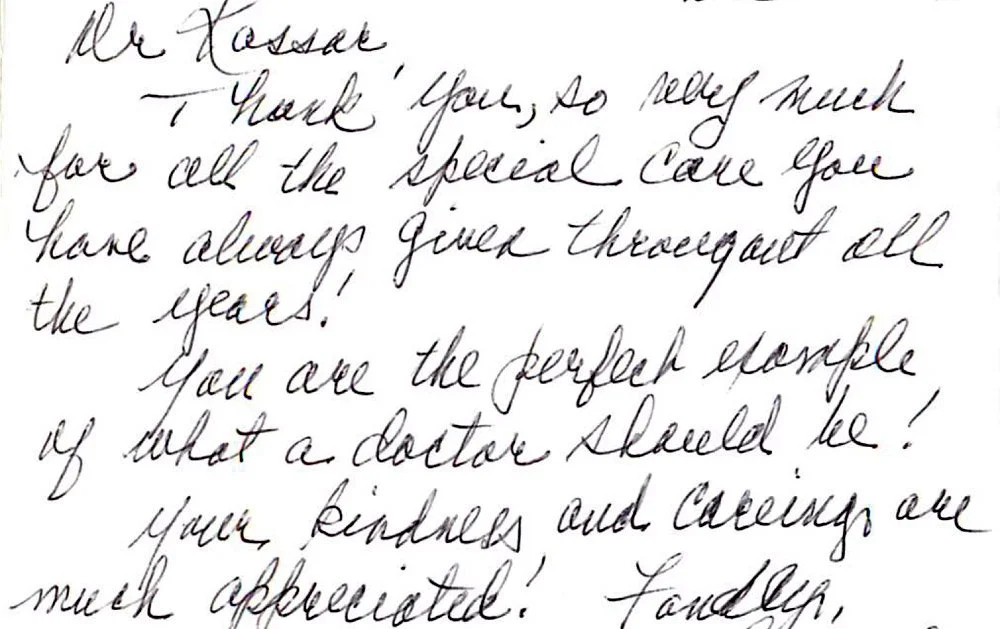 Dr Kassar,
Thank you, so very much
for all the special care you
have always given througout all
the years!
You are the perfect example
of what a doctor should be!
Your kindness and careing are
much appreciated! Fondly,